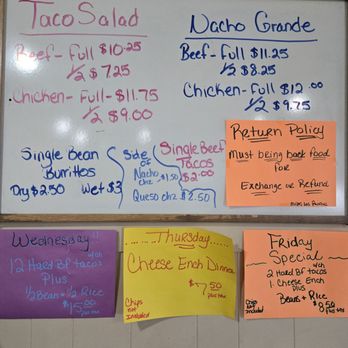 Taco Salad
Beef - Full $10.25
1/2 $7.25
Chicken - Full - $11.75
1/2 $9.00
Nacho Grande
Beef - Full $11.25
1/2 $8.25
Chicken - Full $12.00
1/2 $9.75
Single Bean
Burritos
Dry $2.50 Wet $3
Side
OF
Nacho
chz $1.50
Queso chz $2.50
Single Beef
Tacos
$2.00
Return Policy
Must being back food
for
Exchange or Refund
Wednesday!!
12 Hard Bf tacos
1/2 Bean + 1/2 Rice
$15.00
plus tax
Thursday
Cheese Ench Dinner
$7.50
plus tax
Chips
not
included
Friday
Special
2 Hard Bf tacos
1 Cheese Ench
plus
Beans + Rice
$8.50
plus tax
Chips
not
included